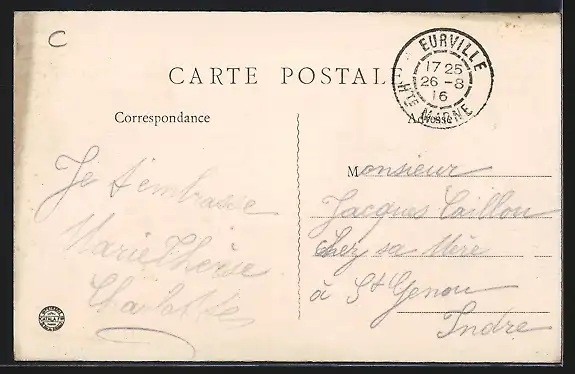 C
EURVILLE
17 25
26 -8
16
Hte MARNE
CARTE POSTALE
Correspondance
Adresse
Je t'embrasse
Marie Thérèse
Charlotte
Monsieur
Jacques Caillou
Chez sa Mère
à St Genou
Indre